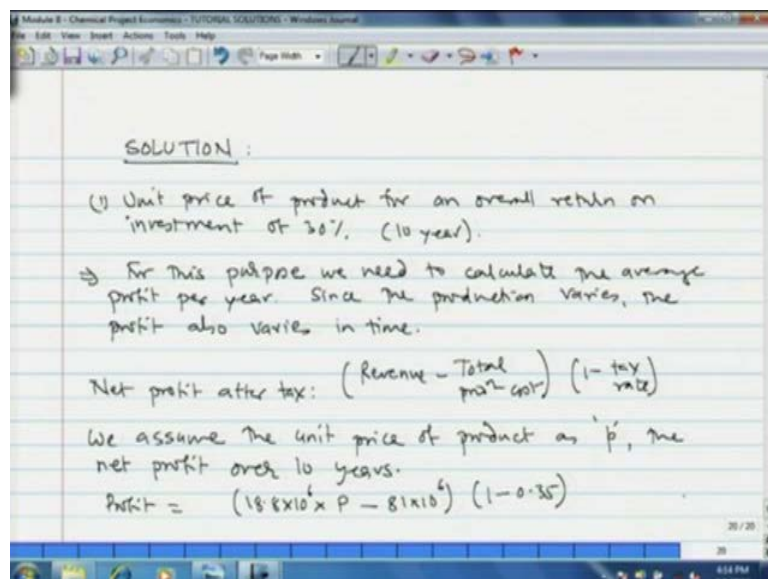 Module 8 - Chemical Project Economics - TUTORIAL SOLUTIONS - Windows Journal
File Edit View Insert Actions Tools Help
Page Width
SOLUTION :
(1) Unit price of product for an overall return on
investment of 30%. (10 year).
⇒ For this purpose we need to calculate the average
profit per year. Since the production varies, the
profit also varies in time.
Net profit after tax: (Revenue - Total prodⁿ cost) (1 - tax rate)
We assume the unit price of product as 'p', the
net profit over 10 years.
Profit = (18.8x10⁶ x P - 81x10⁶) (1-0.35)
20 / 20
20
4:54 PM